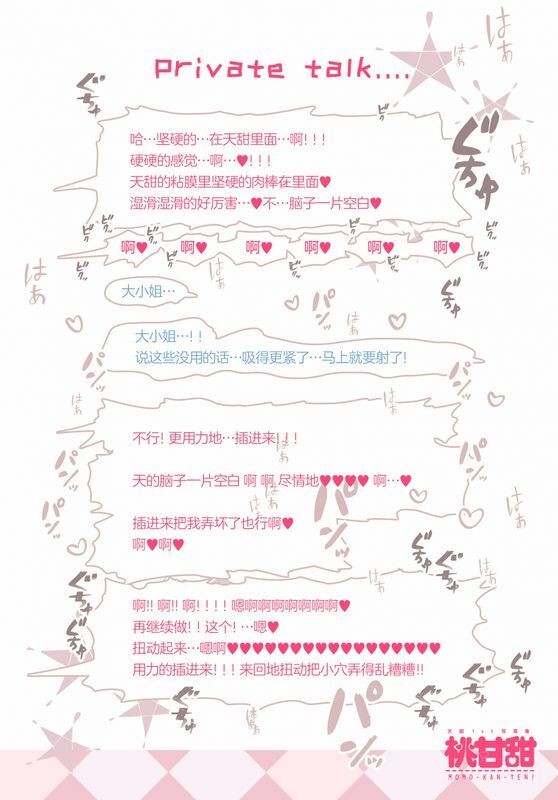 Private talk....
哈…坚硬的…在天甜里面…啊！！！
硬硬的感觉…啊…♥！！！
天甜的粘膜里坚硬的肉棒在里面♥
湿滑湿滑的好厉害…♥不…脑子一片空白♥
啊♥ 啊♥ 啊♥ 啊♥ 啊♥ 啊♥
大小姐…
大小姐…！！
说这些没用的话…吸得更紧了…马上就要射了!
不行! 更用力地…插进来！！！
天的脑子一片空白 啊 啊 尽情地♥♥♥♥ 啊…♥
插进来把我弄坏了也行啊♥
啊♥啊♥
啊!! 啊! 啊! ! ! ! 嗯啊啊啊啊啊啊啊♥
再继续做! ! 这个! …嗯♥
扭动起来…嗯啊♥♥♥♥♥♥♥♥♥♥♥♥♥♥♥♥♥♥
用力的插进来! ! ! 来回地扭动把小穴弄得乱糟糟!!
ぐちゅ
はぁ
はぁ
はぁ
ぐちゅ
ビクッ
はぁ
パンッ
ぐちゅ
はぁ
パンッ
パンッ
パンッ
はぁ
パンッ
ぐちゅ
ぐちゅ
ぐちゅ
パンッ
桃甘甜
MOMO-KAN-TEN!